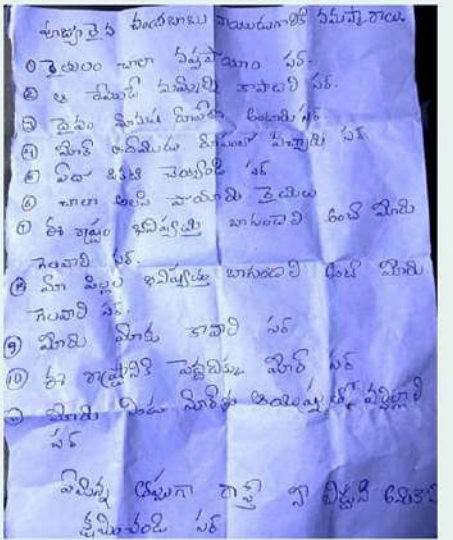 పూజ్యులైన చంద్రబాబు నాయుడుగారికి నమస్కారాలు.
① రైతులం చాలా నష్టపోయాం సర్.
② ఆ దేముడే మమ్మల్ని కాపాడాలి సర్.
③ దైవం మానుష రూపేణా అంటారు సర్.
④ మీరే ఆ దేముడు రూపంలో వచ్చారు సర్.
⑤ ఏదో ఒకటి చెయ్యండి సర్
⑥ చాలా అలసి పోయారు రైతులు
⑦ ఈ రాష్ట్రం భవిష్యత్తు బాగుండాలి అంటే మీరు
గెలవాలి సర్.
⑧ మా పిల్లల భవిష్యత్తు బాగుండాలి అంటే మీరు
గెలవాలి సర్.
⑨ మీరు మాకు కావాలి సర్
⑩ ఈ రాష్ట్రానికి పెద్దదిక్కు మీరే సర్
మీరు నిండు నూరేళ్లు ఆయుష్షుతో వర్ధిల్లాలి
సర్
ఏమన్నా తప్పుగా రాస్తే నీ బిడ్డని
క్షమించండి సర్